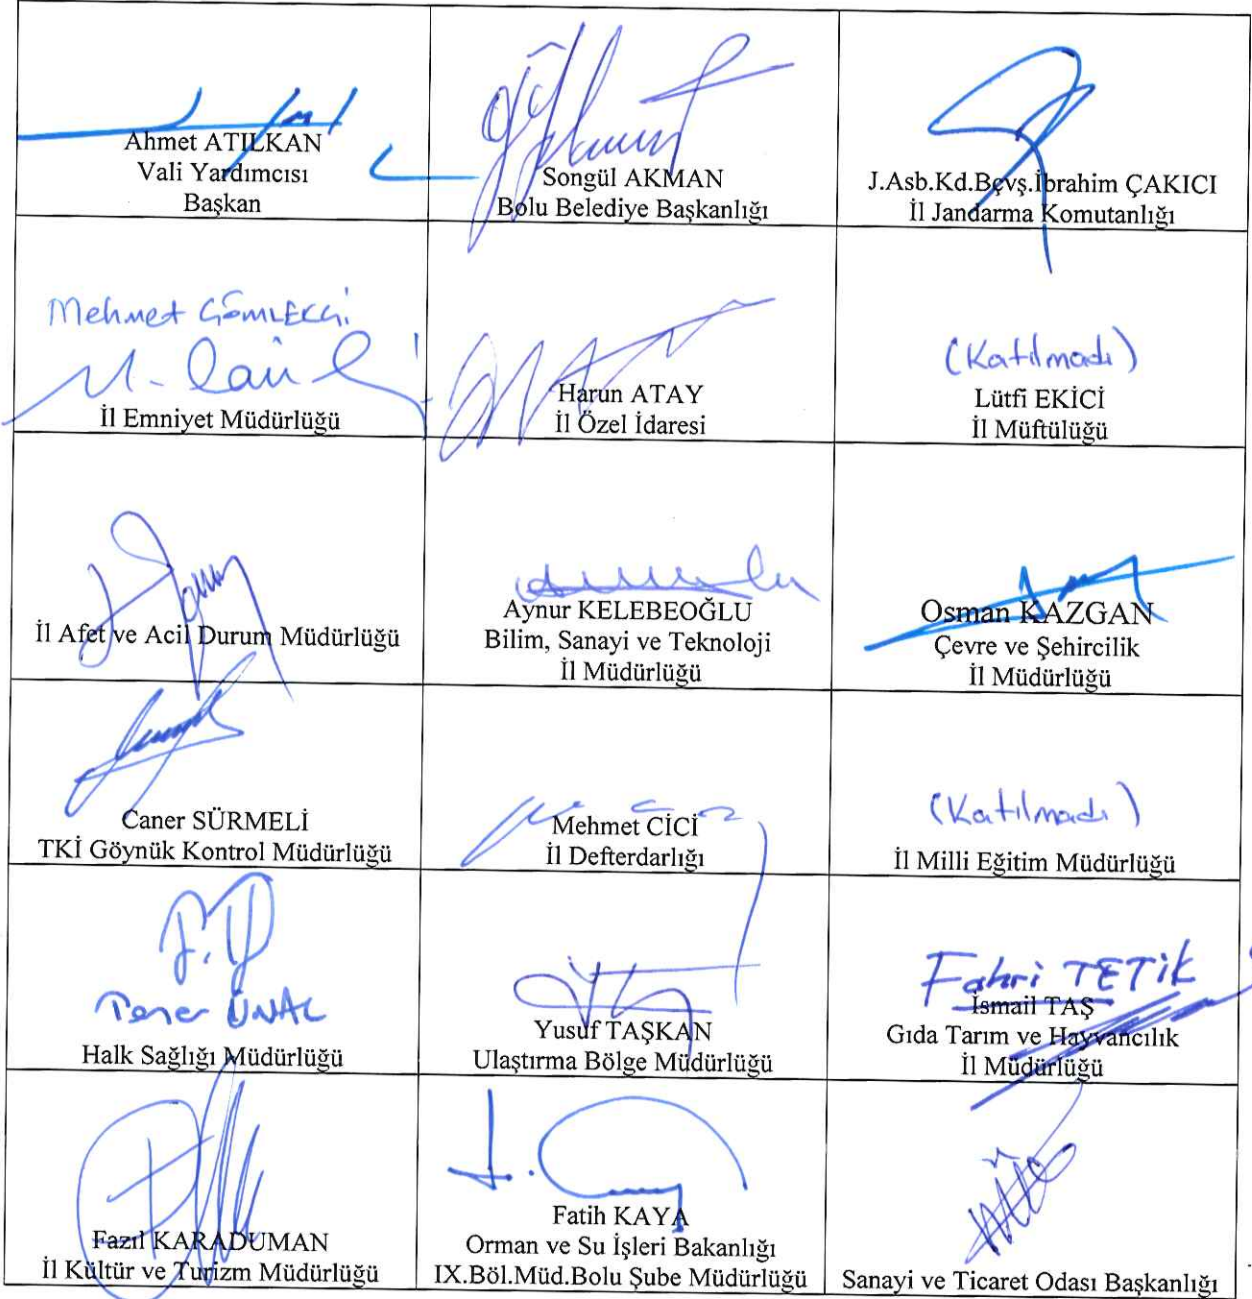 Ahmet ATILKAN
Vali Yardımcısı
Başkan
Songül AKMAN
Bolu Belediye Başkanlığı
J.Asb.Kd.Bçvş.İbrahim ÇAKICI
İl Jandarma Komutanlığı
Mehmet GÖMLEKÇİ
İl Emniyet Müdürlüğü
Harun ATAY
İl Özel İdaresi
(Katılmadı)
Lütfi EKİCİ
İl Müftülüğü
İl Afet ve Acil Durum Müdürlüğü
Aynur KELEBEOĞLU
Bilim, Sanayi ve Teknoloji
İl Müdürlüğü
Osman KAZGAN
Çevre ve Şehircilik
İl Müdürlüğü
Caner SÜRMELİ
TKİ Göynük Kontrol Müdürlüğü
Mehmet CİCİ
İl Defterdarlığı
(Katılmadı)
İl Milli Eğitim Müdürlüğü
ÜNAL
Halk Sağlığı Müdürlüğü
Yusuf TAŞKAN
Ulaştırma Bölge Müdürlüğü
Fahri TETİK
İsmail TAŞ
Gıda Tarım ve Hayvancılık
İl Müdürlüğü
Fazıl KARADUMAN
İl Kültür ve Turizm Müdürlüğü
Fatih KAYA
Orman ve Su İşleri Bakanlığı
IX.Böl.Müd.Bolu Şube Müdürlüğü
Sanayi ve Ticaret Odası Başkanlığı